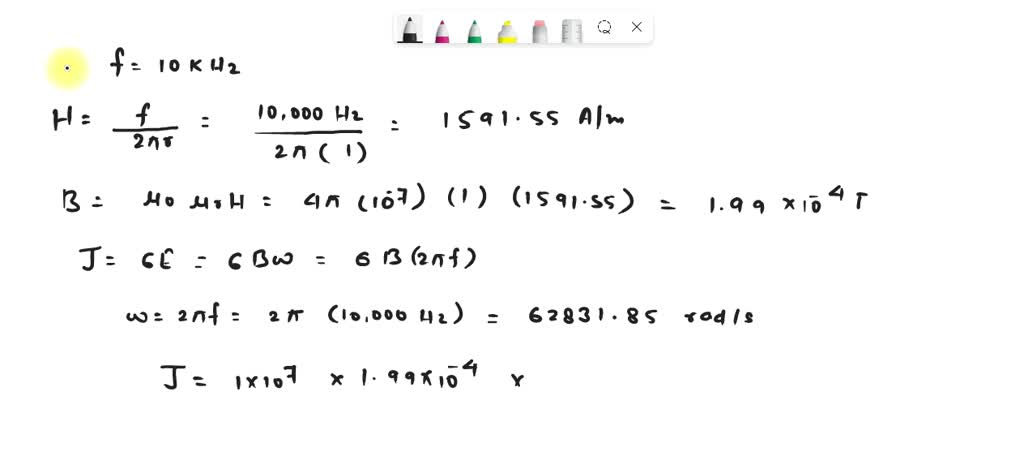 f = 10 KHz
H = f / 2πr = 10,000 Hz / 2π ( 1 ) = 1591.55 A/m
B = μ0 μr H = 4π (10^-7) (1) (1591.55) = 1.99 × 10^-4 T
J = σE = σBω = σB(2πf)
ω = 2πf = 2π (10,000 Hz) = 62831.85 rad/s
J = 1×10^7 × 1.99×10^-4 ×